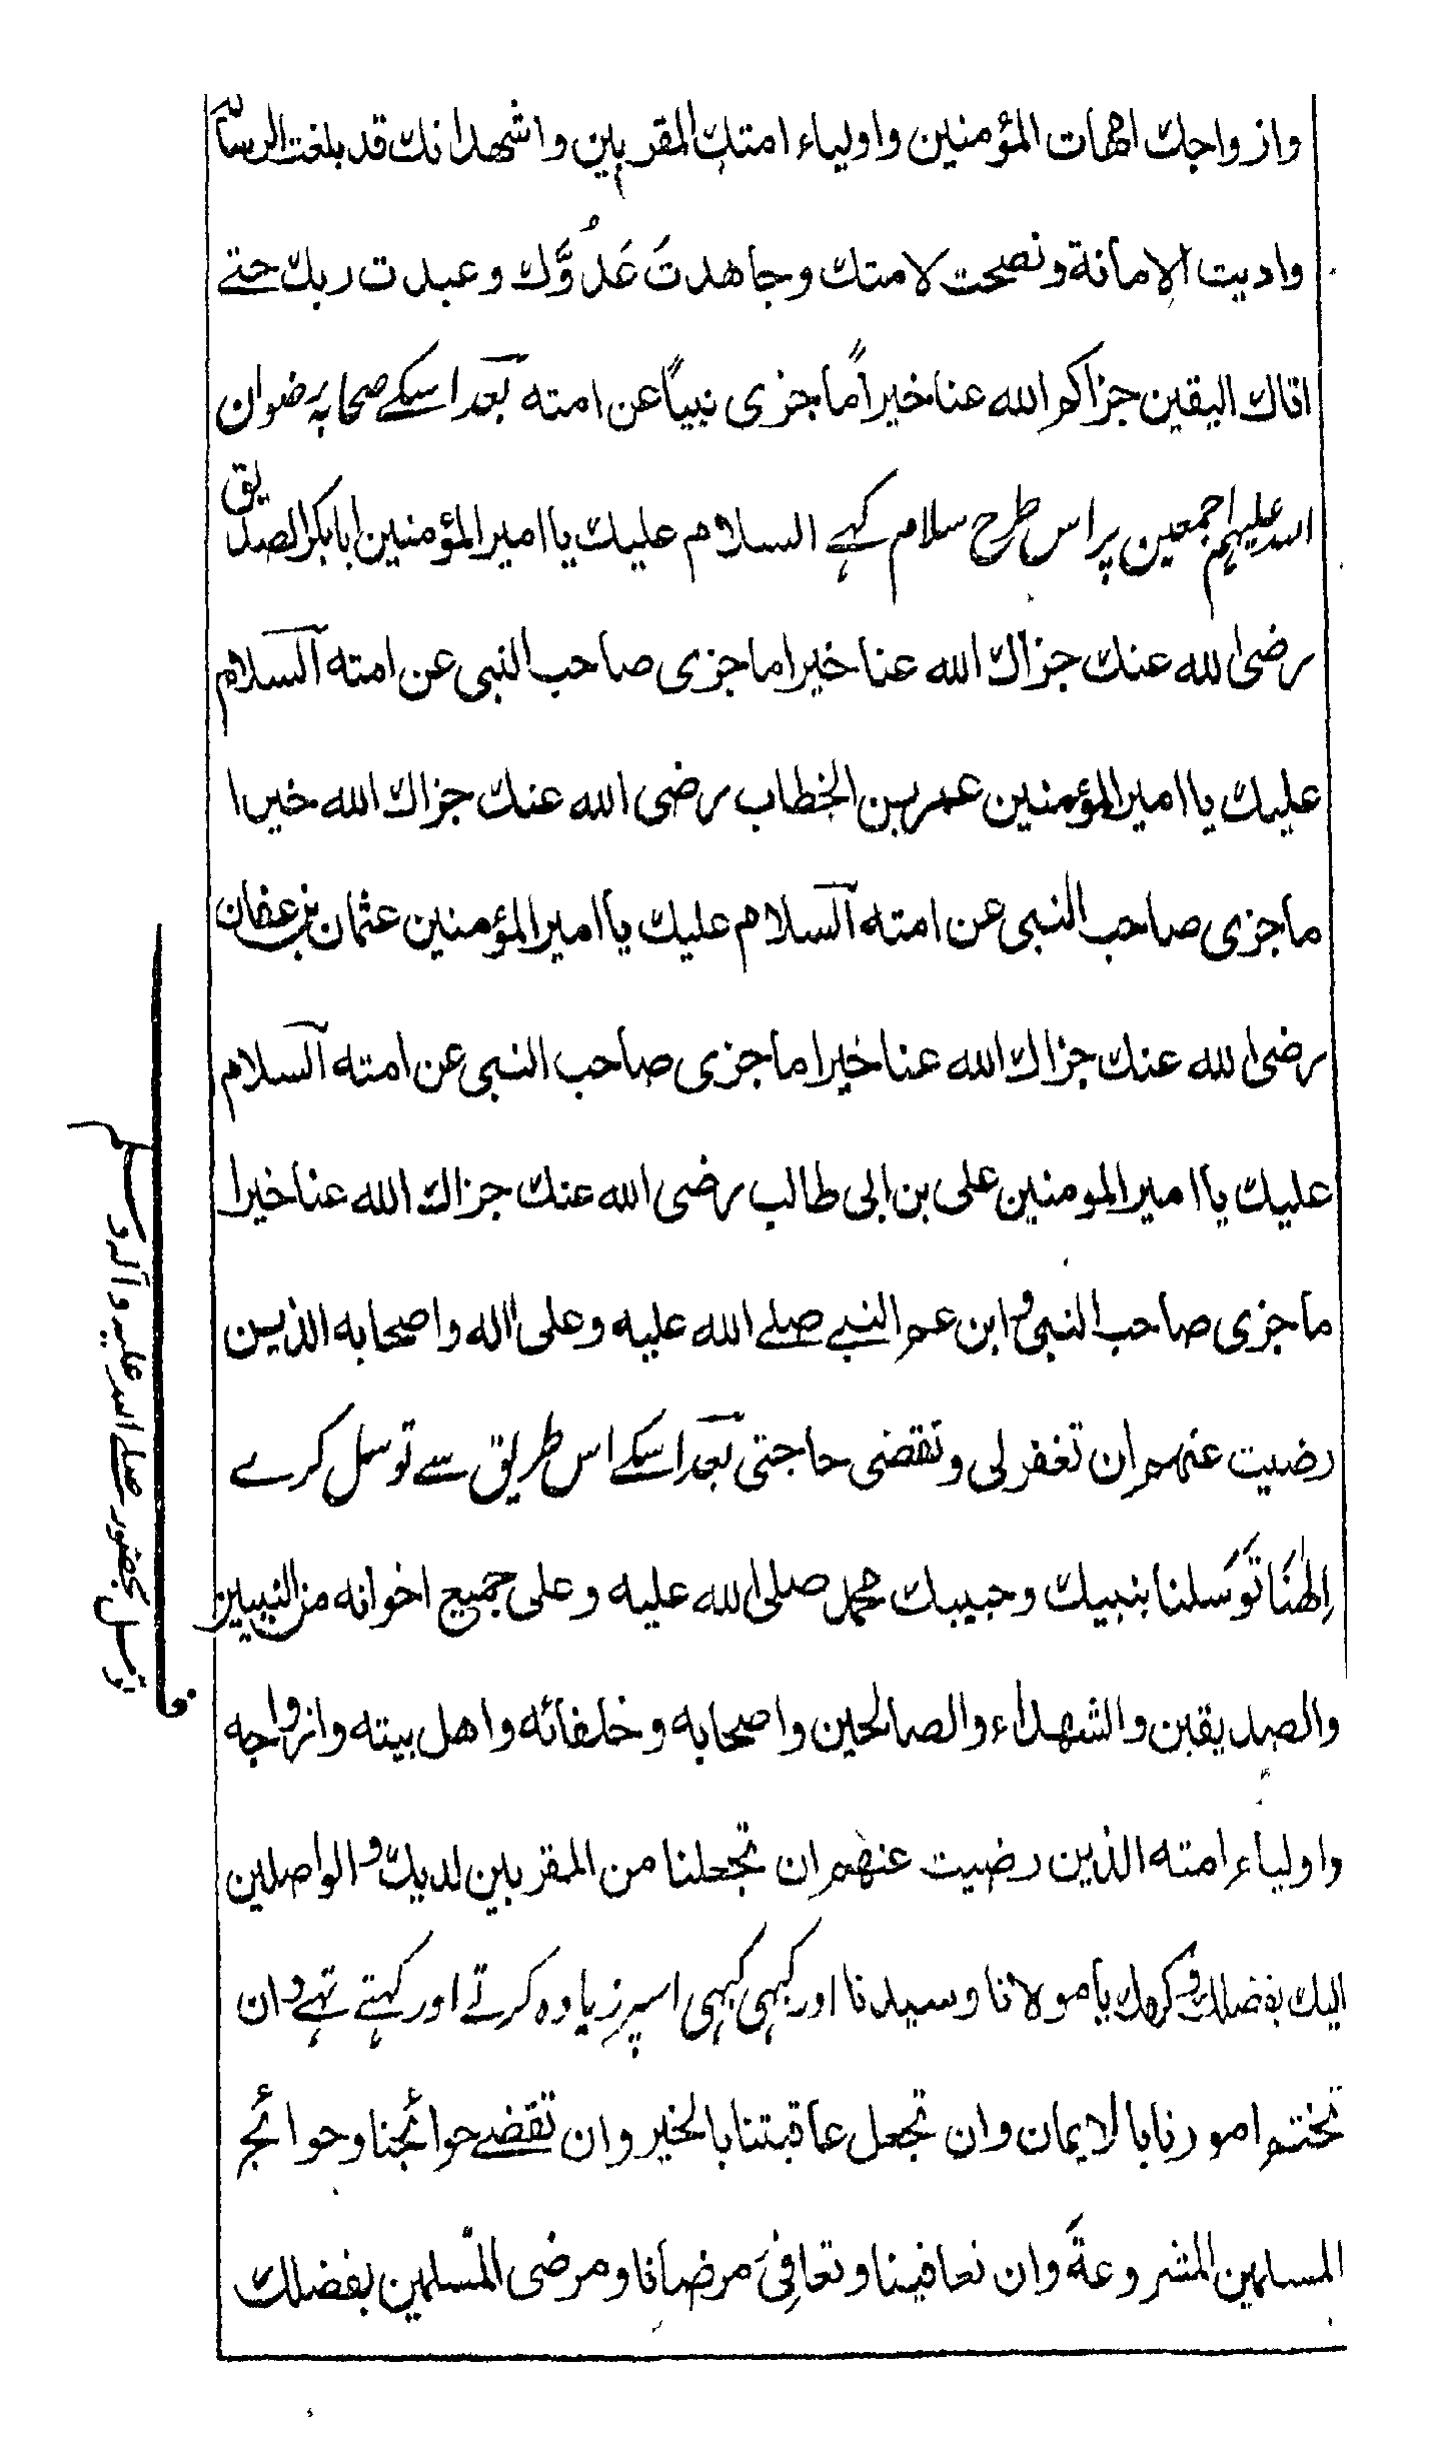 وازواجك امهات المؤمنين واولياء امتك المقربين واشهد انك قد بلغت الرسالة
واديت الامانة ونصحت لامتك وجاهدتَ عَدُوَّك وعبدت ربك حتے
اتاك اليقين جزاكم الله عنا خيراً ما جزى نبياً عن امته بعد اسکے صحابہ رضوان
اللہ علیہم اجمعین پر اس طرح سلام کہے السلام عليك يا امير المؤمنين ابا بكر الصديق
رضى الله عنك جزاك الله عنا خيرا ما جزى صاحب النبى عن امته السلام
عليك يا امير المؤمنين عمر بن الخطاب رضى الله عنك جزاك الله خيرا
ما جزى صاحب النبى عن امته السلام عليك يا امير المؤمنين عثمان بن عفان
رضى الله عنك جزاك الله عنا خيرا ما جزى صاحب النبى عن امته السلام
عليك يا امير المومنين على بن ابى طالب رضى الله عنك جزاك الله عنا خيرا
ما جزى صاحب النبى و ابن عم النبے صلے الله عليه وعلى اله واصحابه الذين
رضيت عنهم ان تغفر لى وتقضى حاجتى بعد اسکے اس طریق سے توسل کرے
اِلٰهَنَا تَوَسَلنا بنبيك وحبيبك محمد صلى الله عليه وعلى جميع اخوانه من النبيين
والصديقين والشهداء والصالحين واصحابه وخلفائه واهل بيته وازواجه
واولياء امته الذين رضيت عنهم ان تجعلنا من المقربين لديك والواصلين
اليك بفضلك وكرمك يا مولانا وسيدنا اور کبہی کبہی اسپر زیادہ کرتے اور کہتے تہے وان
تختم امورنا بالايمان وان تجعل عاقبتنا بالخير وان تقضے حوائجنا وحوائج
المسلمين المشروعةَ وان تعافينا وتعافِیَ مرضانا ومرضى المسلمين بفضلك
ف
توسل بحضور صلے اللہ علیہ وآلہ وسلم